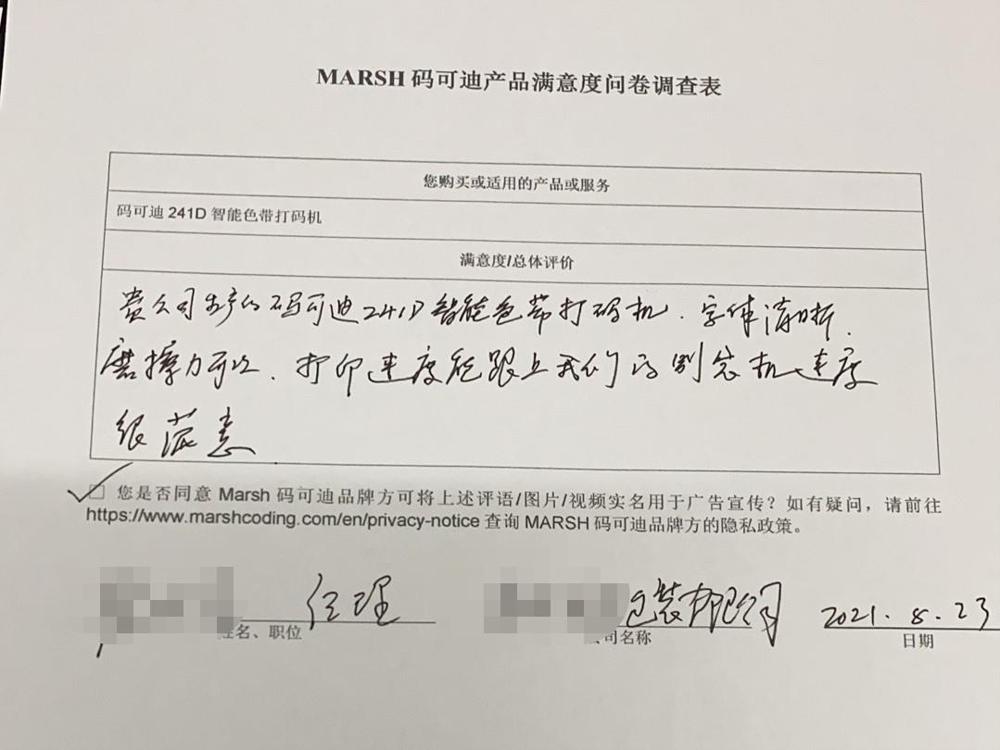 MARSH 码可迪产品满意度问卷调查表
您购买或适用的产品或服务
码可迪 241D 智能色带打码机
满意度/总体评价
贵公司生产的码可迪241D智能色带打码机.字体清晰.
磨擦力可以.打印速度能跟上我们的制袋机速度
很满意
您是否同意 Marsh 码可迪品牌方可将上述评语/图片/视频实名用于广告宣传？如有疑问，请前往
https://www.marshcoding.com/en/privacy-notice 查询 MARSH 码可迪品牌方的隐私政策。
经理 包装有限公司 2021.8.23
姓名、职位 公司名称 日期